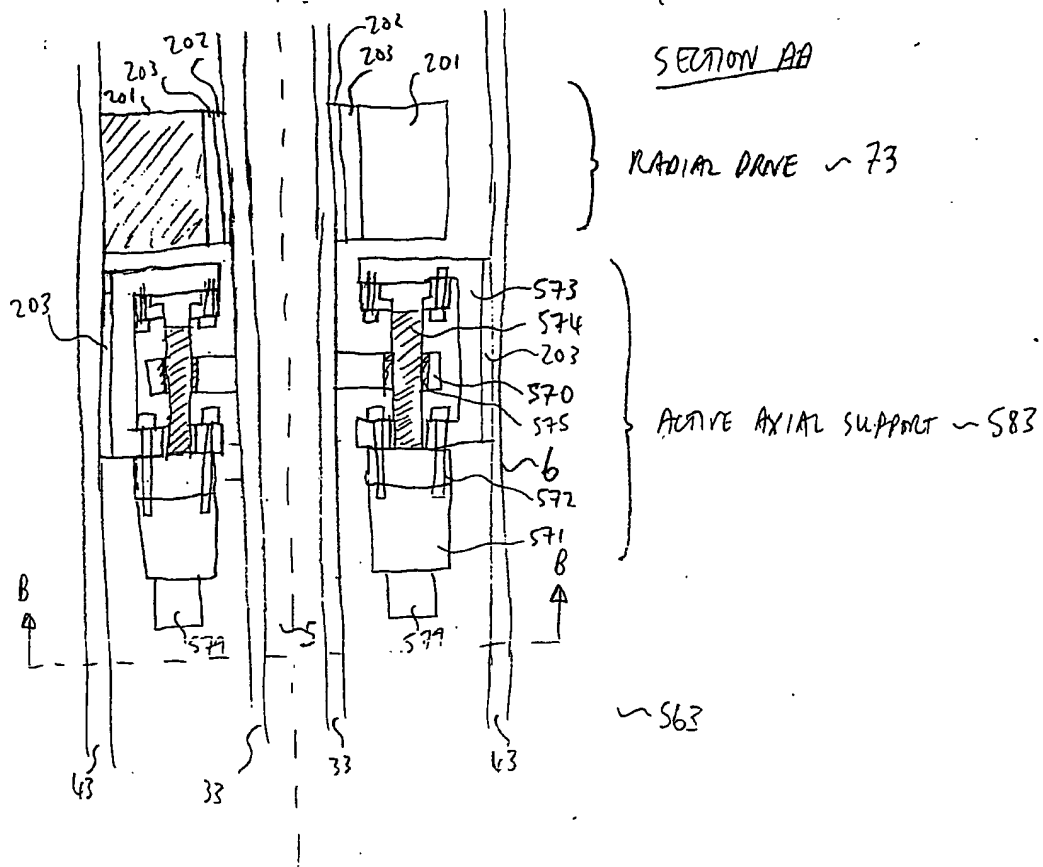 SECTION AA
202
202
203
203
201
201
RADIAL DRIVE ~ 73
203
573
574
203
570
575
ACTIVE AXIAL SUPPORT ~ 583
6
572
571
B
B
579
5
579
~ 563
43
33
33
43